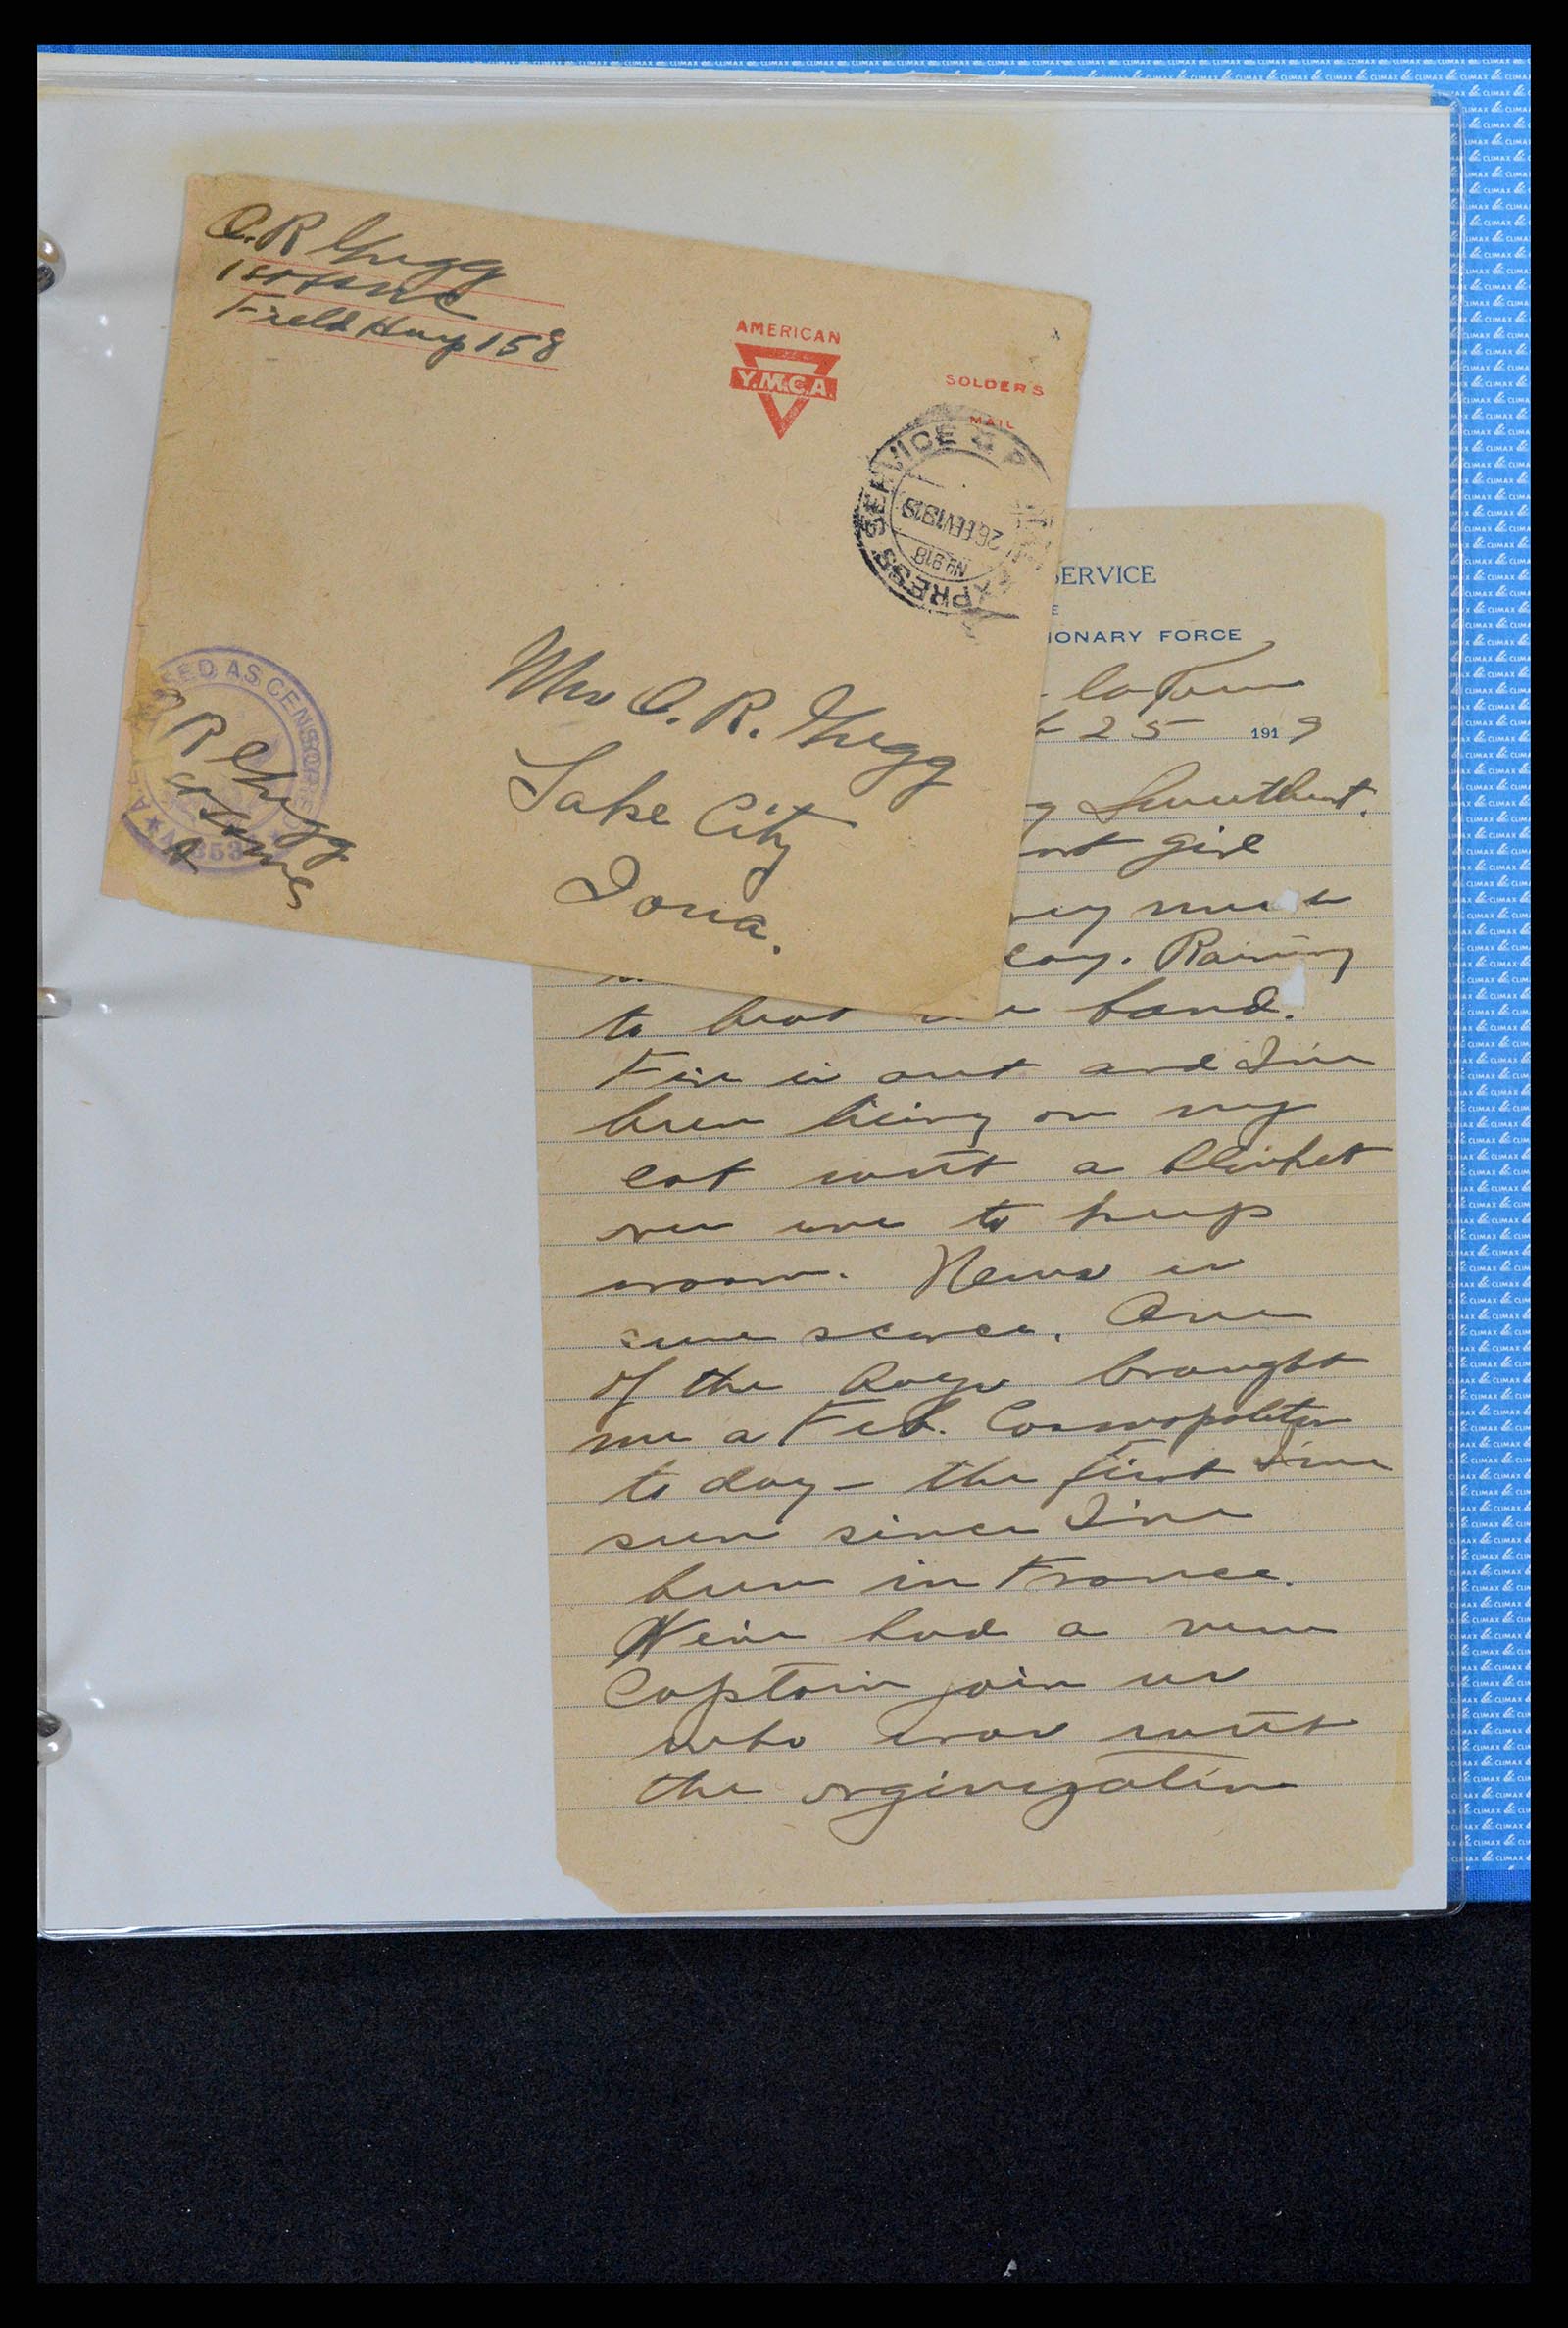 O.R. Gregg
1st Lt MC
Field Hosp 158
AMERICAN
Y.M.C.A.
SOLDER'S
MAIL
EXPRESS SERVICE
26 FEV 1919
No 918
Mrs O. R. Gregg
Lake City
Iowa.
PASSED AS CENSORED
O R Gregg
1st Lt MC
SERVICE
E
IONARY FORCE
25 1919
y Sweetheart.
girl
very much
day. Raining
to beat the band.
Fire is out and I've
been lieing on my
cot with a blanket
over me to keep
warm. News is
sure scarce. One
of the boys brought
me a Feb. Cosmopolitan
to day – the first I've
seen since I've
been in France.
We've had a new
Captain join us
who was with
the orginization
CLIMAX